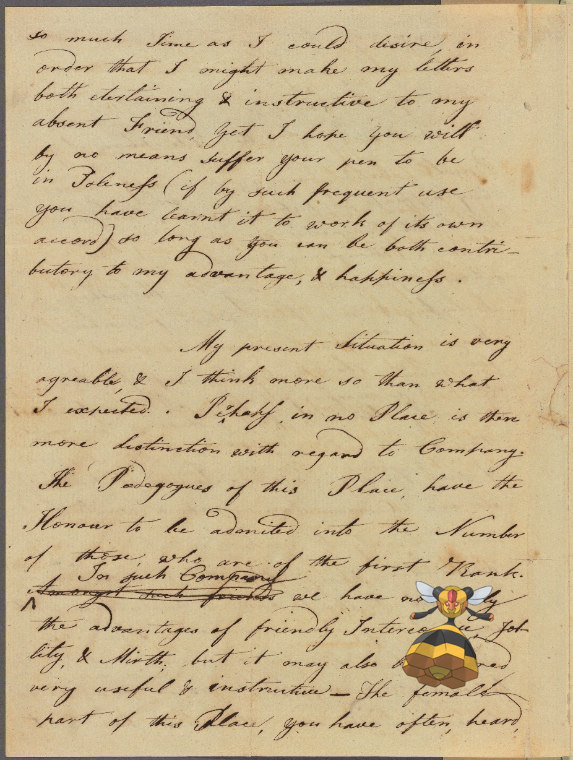 so much Time as I could desire in
order that I might make my letters
both entertaining & instructive to my
absent Friend yet I hope you will
by no means suffer your pen to be
in Idleness (if by such frequent use
you have learnt it to work of its own
accord) so long as you can be both contri-
butory to my advantage, & happiness.
My present Situation is very
agreable, & I think more so than what
I expected. Perhaps in no Place is there
more distinction with regard to Company.
The Pedegogues of this Place, have the
Honour to be admited into the Number
of those, who are of the first Rank.
In such Company
Amongst such friends we have
the advantages of friendly
lity, & Mirth; but it may also
very useful & instructive — The female
part of this Place, you have often heard